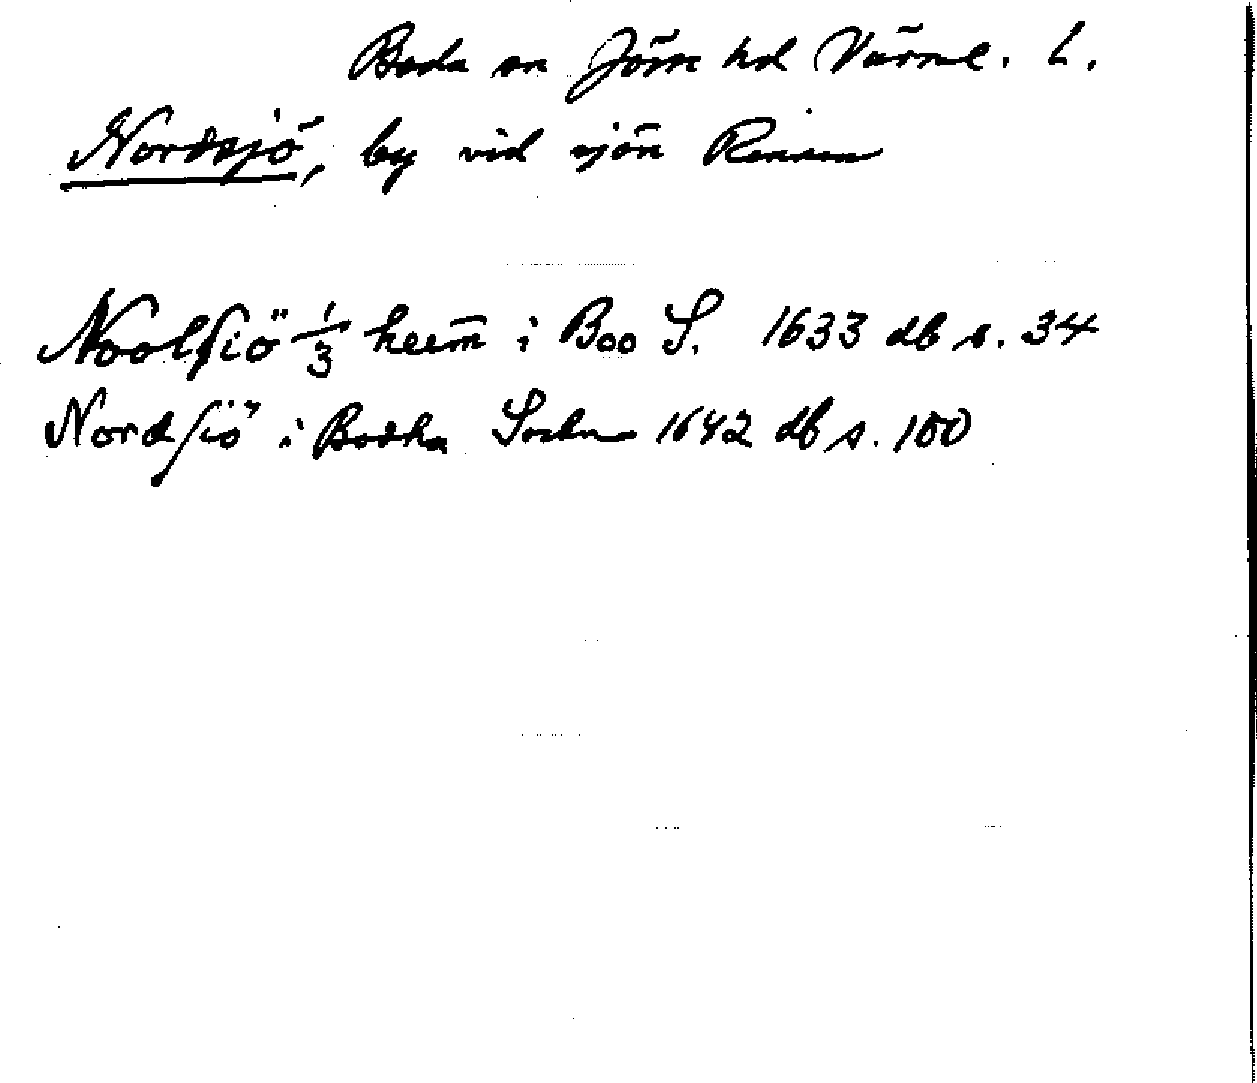 Boda sn Jösse hd Värml. L.
Nordsjö, by vid sjön Rinnen
Noolsiö 1/3 heem̄ i Boo S. 1633 db s. 34
Nordsiö i Bodha Sochn 1642 db s. 100